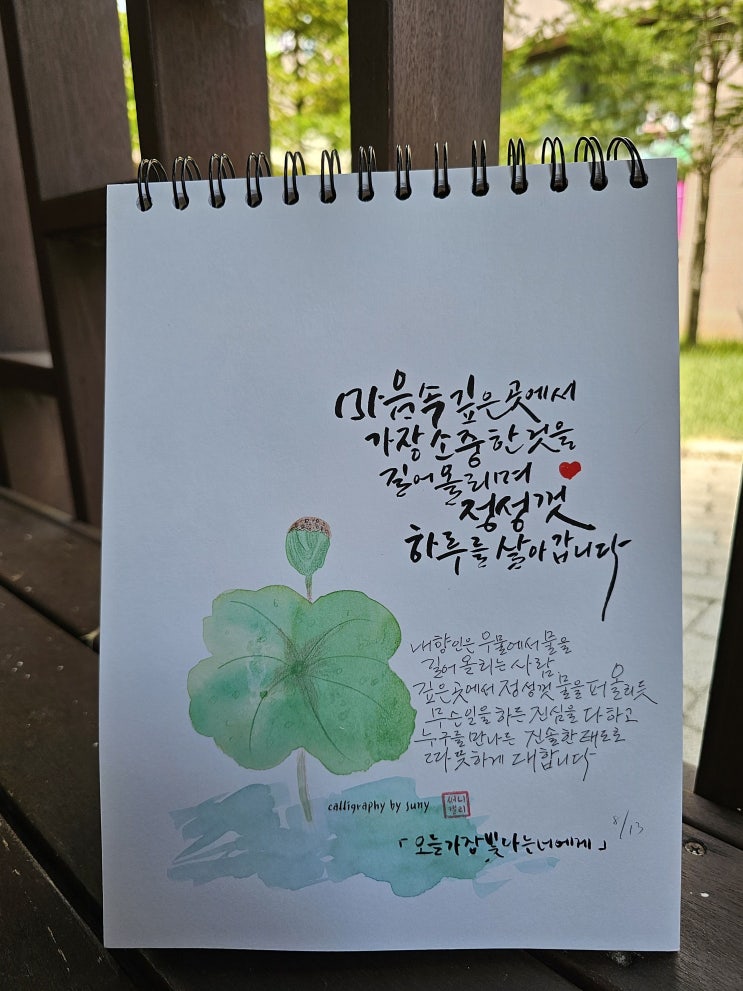 마음속 깊은 곳에서
가장 소중한 것을
길어 올리며
정성껏
하루를 살아갑니다
내향인은 우물에서 물을
길어 올리는 사람
깊은 곳에서 정성껏 물을 퍼 올리듯
무슨 일을 하든 진심을 다하고
누구를 만나든 진솔한 태도로
따뜻하게 대합니다
calligraphy by suny
써니
캘리
8/13
「오늘 가장 빛나는 너에게」